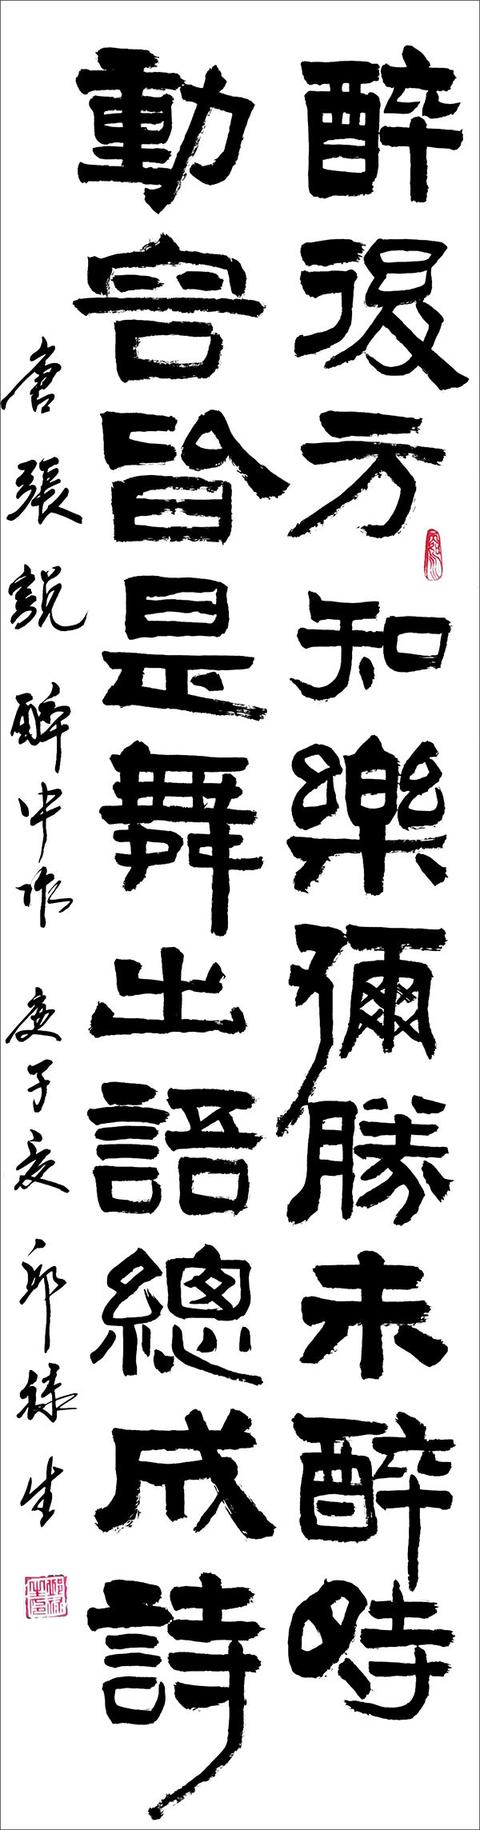 醉後方知樂彌勝未醉時
動容皆是舞出語總成詩
唐張說醉中作 庚子夏 邱祿生